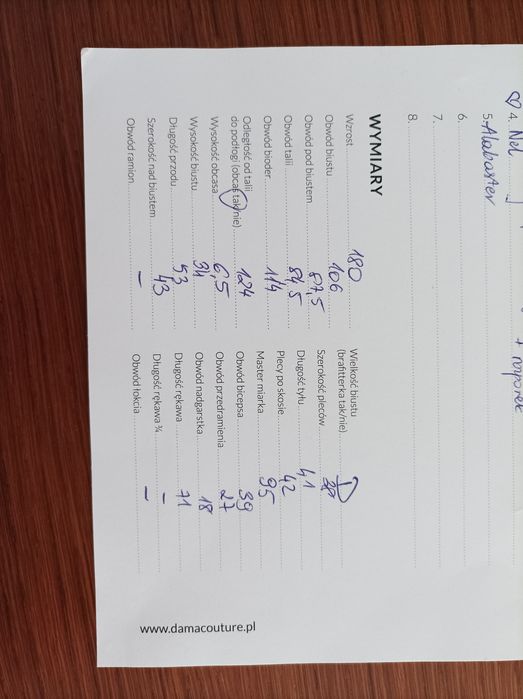 4. Nel
+ naporek
5. Alabaster
6.
7.
8.
WYMIARY
Wzrost 180
Obwód biustu 106
Obwód pod biustem 87,5
Obwód talii 84,5
Obwód bioder 114
Odległość od talii
do podłogi (obcas tak/nie) 124
Wysokość obcasa 6,5
Wysokość biustu 34
Długość przodu 53
Szerokość nad biustem 43
Obwód ramion —
Wielkość biustu
(brafitterka tak/nie) D
Szerokość pleców
Długość tyłu 41
Plecy po skosie 42
Master miarka 95
Obwód bicepsa 39
Obwód przedramienia 27
Obwód nadgarstka 18
Długość rękawa 71
Długość rękawa ¾ —
Obwód łokcia —
www.damacouture.pl